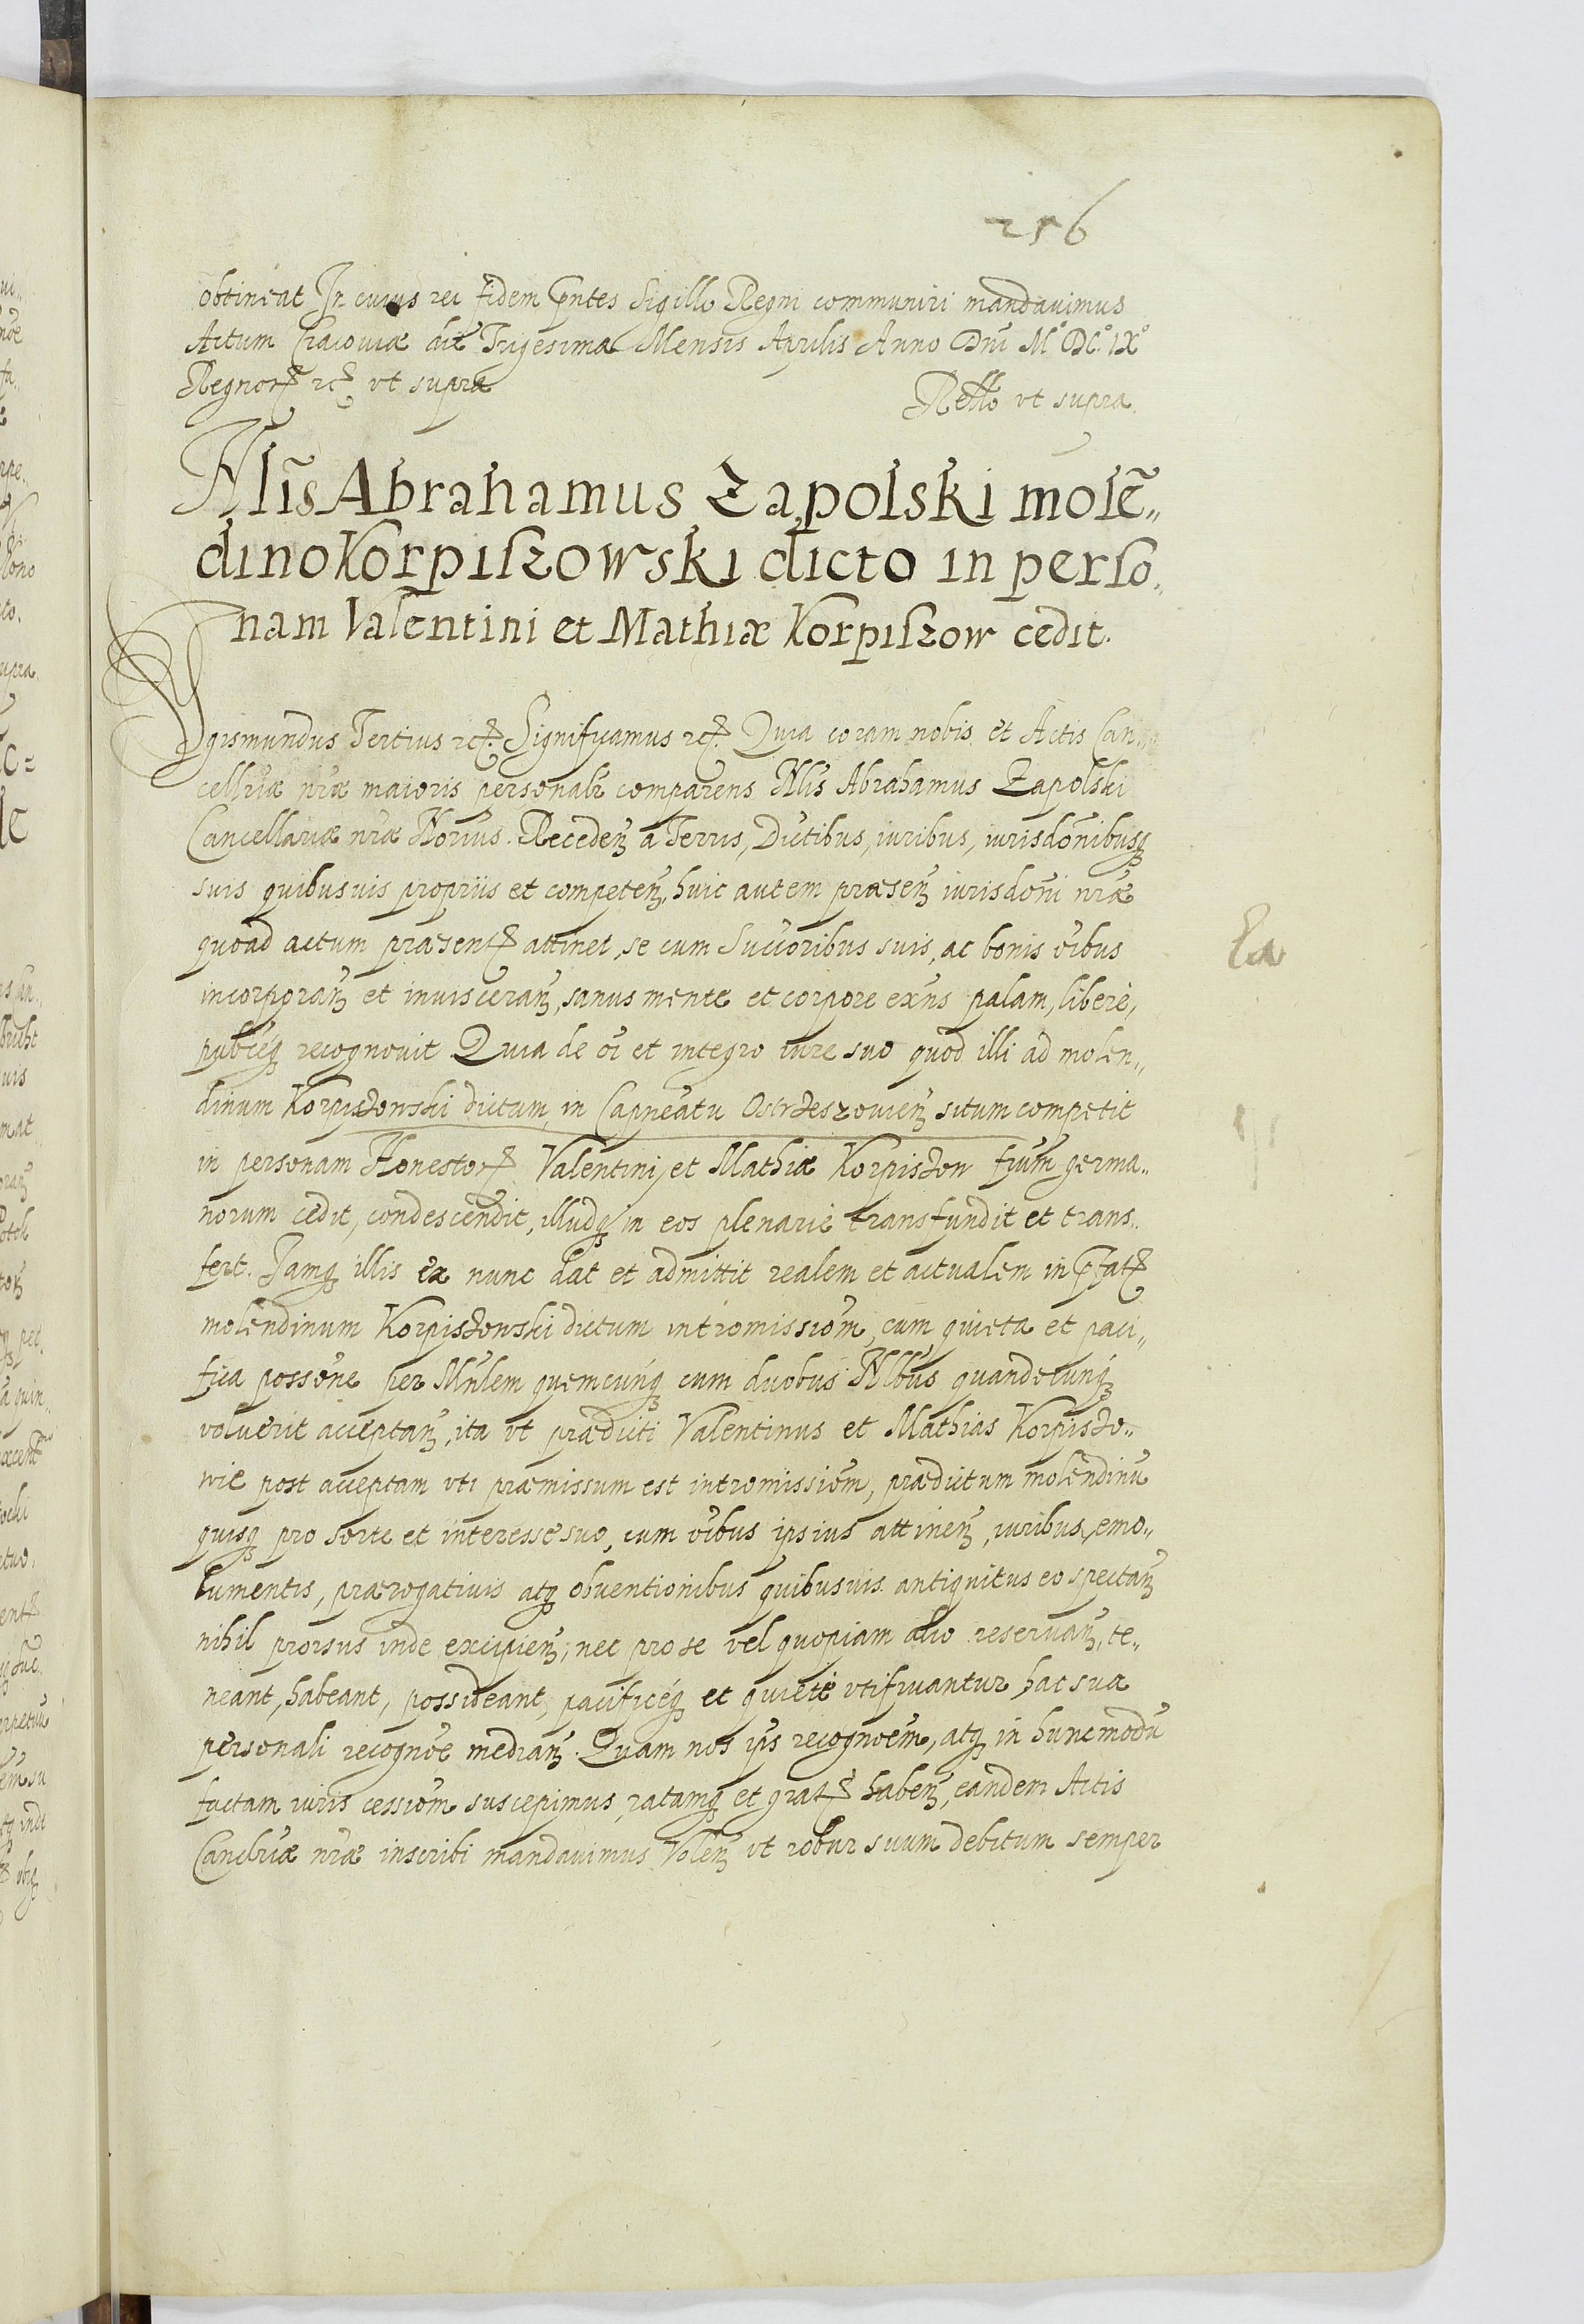 256
obtineat In cuius rei fidem pntes Sigillo Regni communiri mandauimus
Actum Cracouiæ die Trigesima Mensis Aprilis Anno Dni M° DC° IX°
Regnorꝝ rcꝭ vt supra
Rello vt supra.
Nlis Abrahamus Zapolski molē„
dino Korpiszowski dicto in perso„
nam Valentini et Mathiæ Korpiszow cedit.
Sygismundus Tertius rcꝭ. Significamus rcꝭ. Quia coram nobis et Actis Can„
cellriæ nræ maioris personalr comparens Nlis Abrahamus Zapolski
Cancellariæ nræ Norius. Recedenꝫ a Terris, Dictibus, iuribus, iurisdonibusqꝫ
suis quibusuis propriis et competenꝫ, huic autem præsenꝫ iurisdoni nræ
quoad actum præsentꝭ attinet, se cum Succoribus suis, ac bonis oibus
incorporanꝫ et inuisceranꝫ, sanus mente et corpore exns palam, liberè,
publiceqꝫ recognouit Quia de oi et integro iure suo quod illi ad molen„
dinum Korpiszowski dictum, in Capneatu Ostrzeszouienꝫ situm competit
in personam Honestorꝝ Valentini et Mathiæ Korpiszow frum germa„
norum cedit, condescendit, illudqꝫ in eos plenariè transfundit et trans„
fert. Iamqꝫ illis ex nunc dat et admittit realem et actualem in pfatꝭ
molendinum Korpiszowski dictum intromissiom, cum quieta et paci„
fica possone per Mnlem quemcunqꝫ cum duobus Nlbus quandocunqꝫ
voluerit acceptanꝫ, ita vt prædicti Valentinus et Mathias Korpiszo„
wie post acceptam vti præmissum est intromissiem, prædictum molendinū
quisqꝫ pro sorte et interesse suo, cum oibus ipsius attinenꝫ, iuribus, emo„
lumentis, prærogatiuis atqꝫ obuentionibus quibusuis antiquitus eo spectanꝫ
nihil prorsus inde excipienꝫ, nec pro se vel quopiam alio reseruanꝫ, te„
neant, habeant, possideant, pacificeqꝫ et quietè vtifruantur hac sua
personali recognoe medianꝫ. Quam nos ips recognoem, atqꝫ in hunc modū
factam iuris cessiom suscepimus, ratamqꝫ et gratꝭ habenꝫ, eandem Actis
Canclriæ nræ inscribi mandauimus Volenꝫ vt robur suum debitum semper